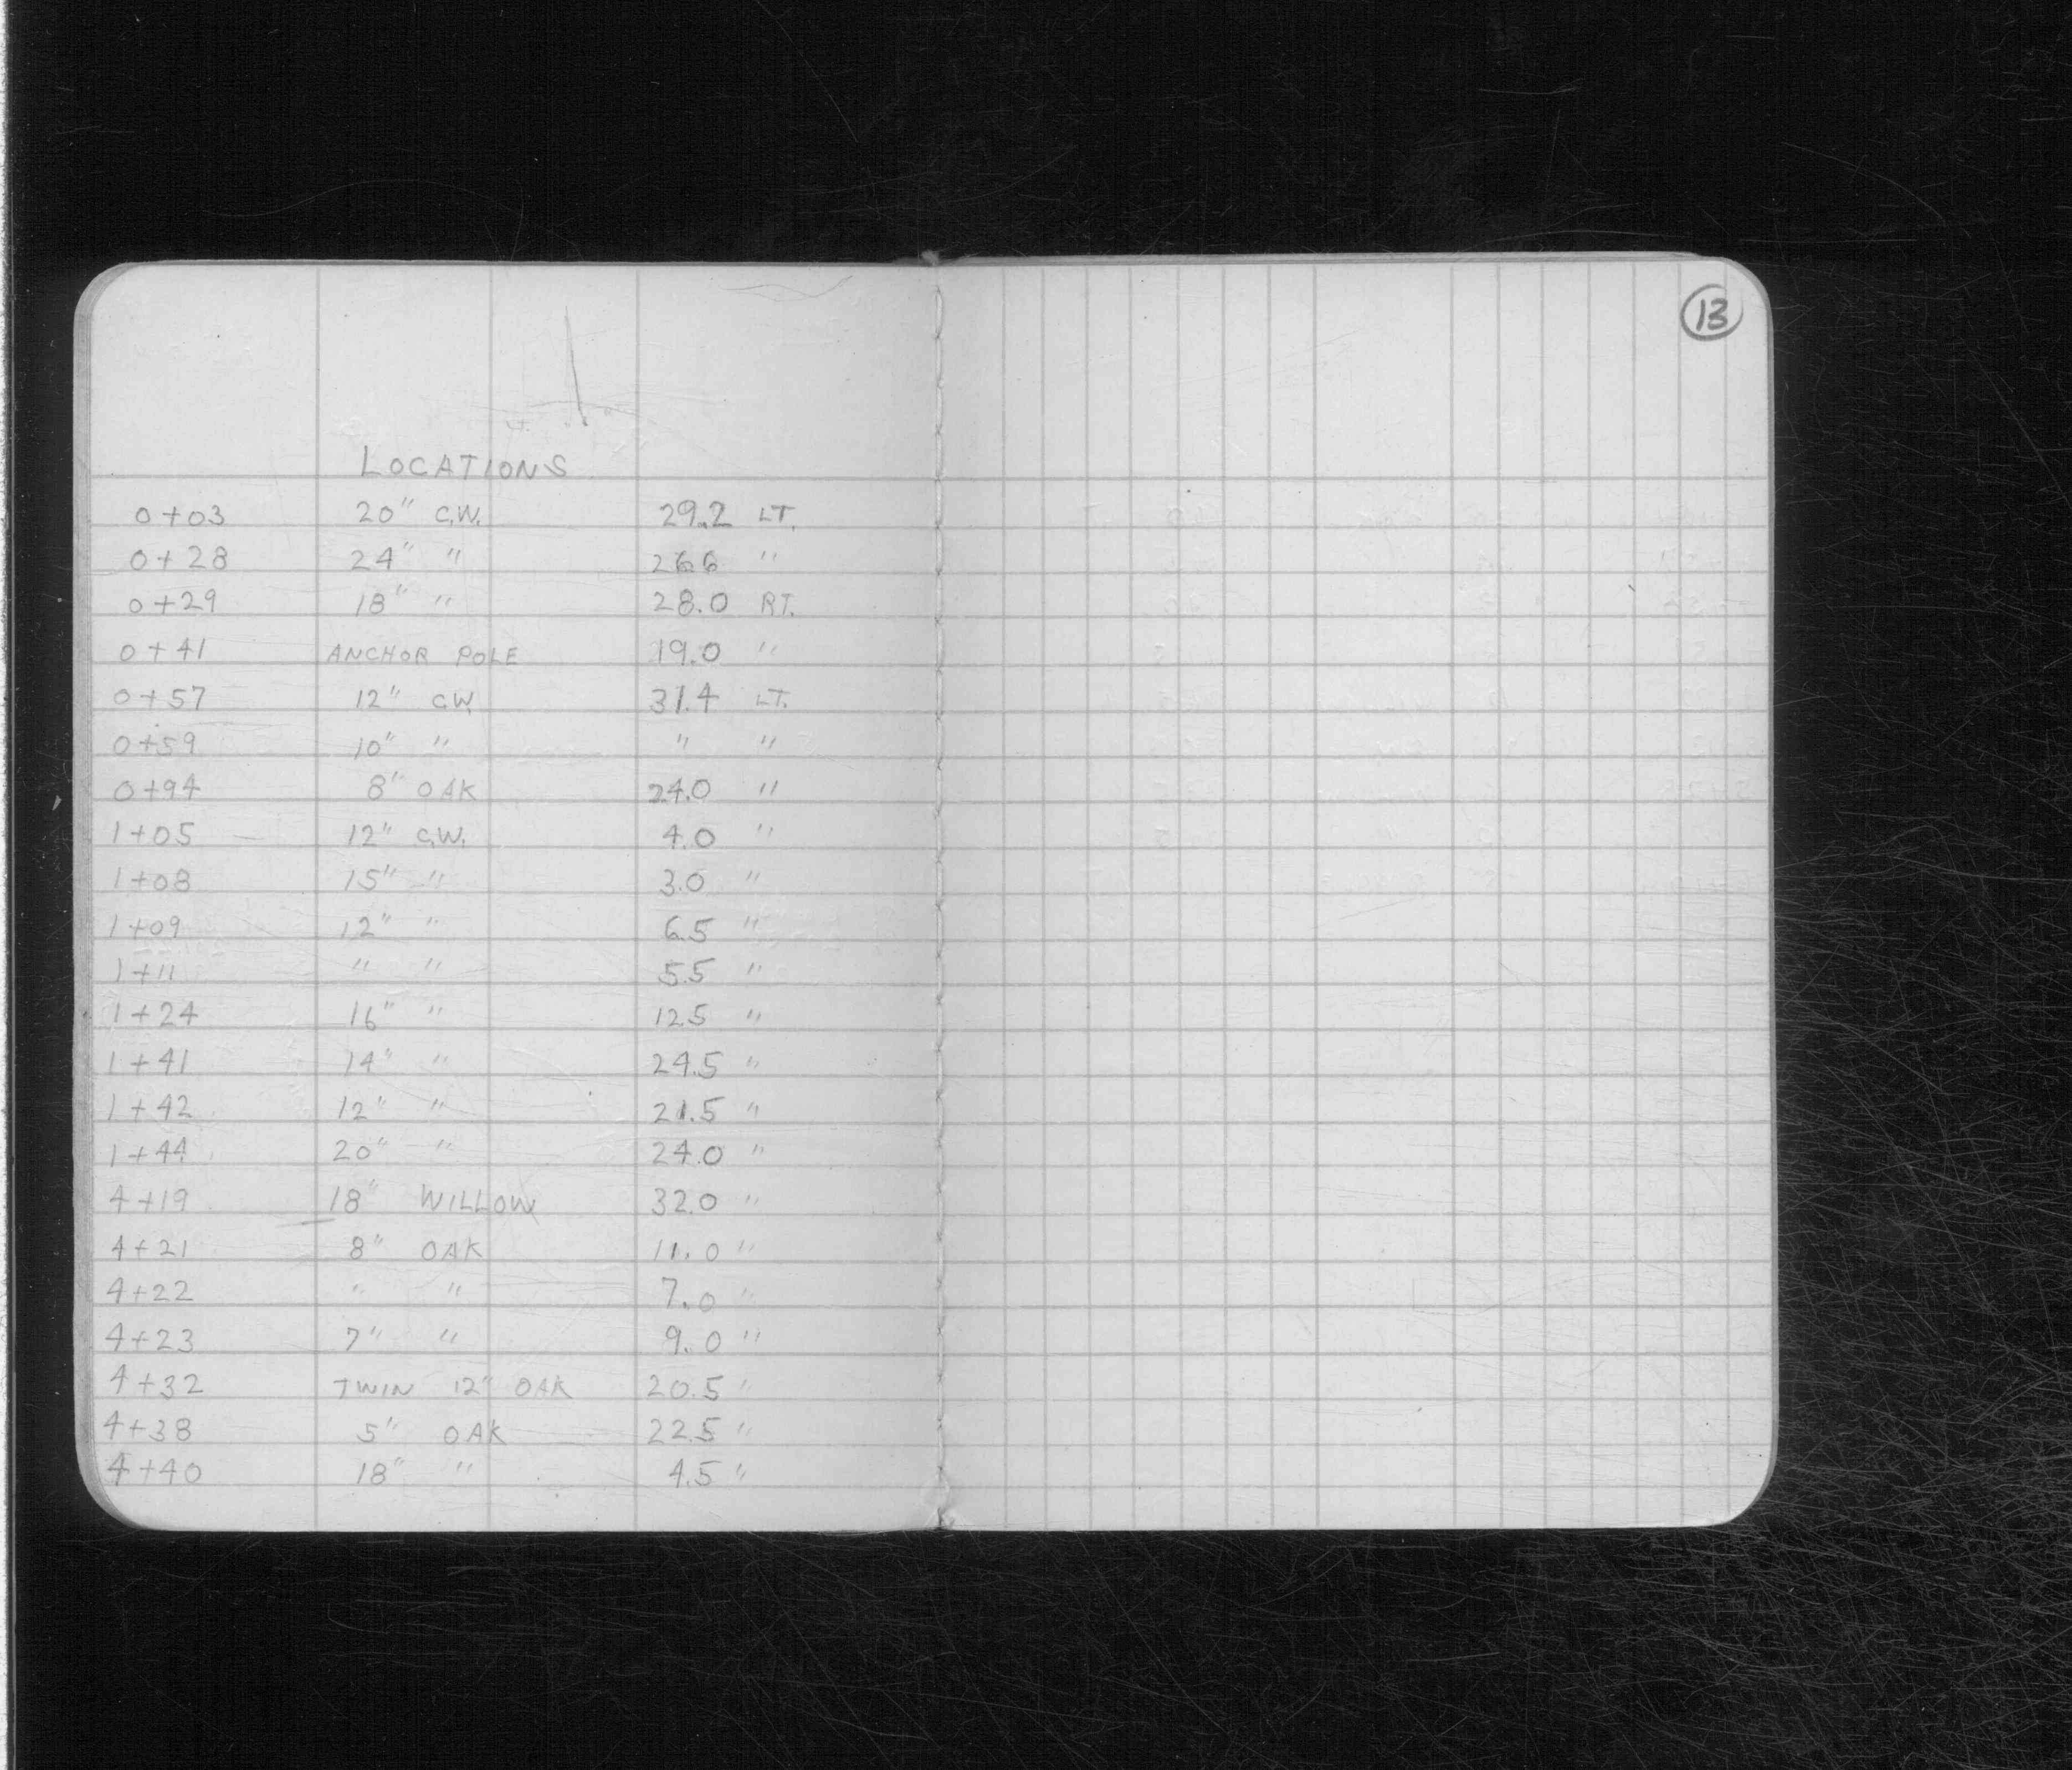 13
LOCATIONS
0+03 20" C.W. 29.2 LT.
0+28 24" " 26.6 "
0+29 18" " 28.0 RT.
0+41 ANCHOR POLE 19.0 "
0+57 12" C.W. 31.4 LT.
0+59 10" " " "
0+94 8" OAK 24.0 "
1+05 12" C.W. 4.0 "
1+08 15" " 3.0 "
1+09 12" " 6.5 "
1+11 " " 5.5 "
1+24 16" " 12.5 "
1+41 14" " 24.5 "
1+42 12" " 21.5 "
1+44 20" " 24.0 "
4+19 18" WILLOW 32.0 "
4+21 8" OAK 11.0 "
4+22 " " 7.0 "
4+23 7" " 9.0 "
4+32 TWIN 12" OAK 20.5 "
4+38 5" OAK 22.5 "
4+40 18" " 4.5 "